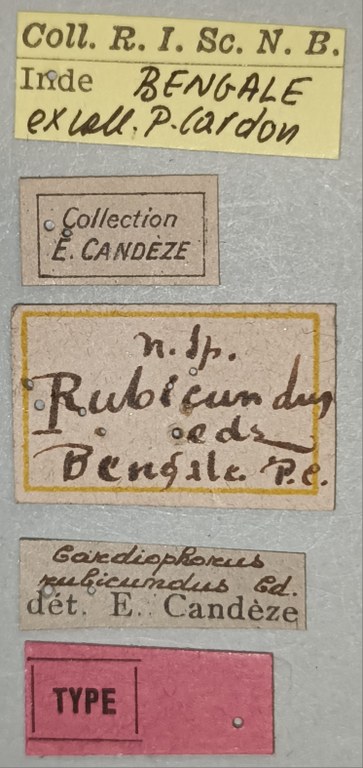 Coll. R. I. Sc. N. B.
Inde BENGALE
ex coll. P. Cardon
Collection
E. CANDÈZE
n. sp.
Rubicundus
cdz
Bengale P. C.
Cardiophorus
rubicundus Cd.
dét. E. Candèze
TYPE